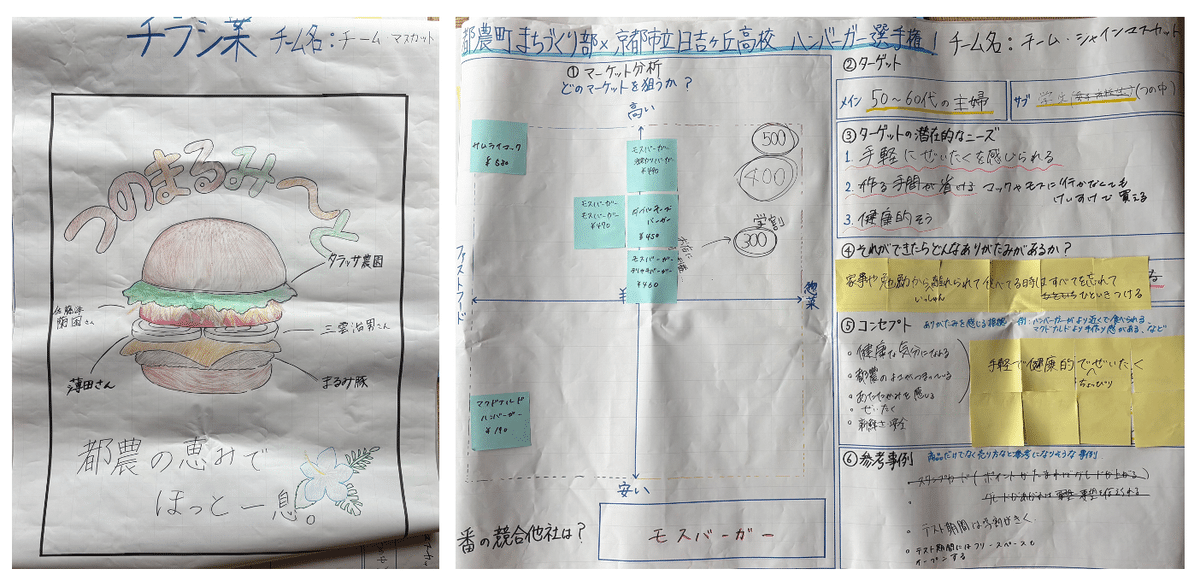 チラシ案 チーム名：チーム マスカット
つのまるみーと
タラッサ農園
三雲治男さん
薄田さん
まるみ豚
都農の恵みで
ほっと一息。
都農町まちづくり部×京都市立日吉ヶ丘高校 ハンバーガー選手権！ チーム名：チーム・シャインマスカット
① マーケット分析
どのマーケットを狙うか？
高い
サムライマック
モスバーガー
¥490
500
400
モスバーガー
モスバーガー
¥470
バーガー
¥450
学割
300
モスバーガー
テリヤキバーガー
¥460
ファストフード
¥
惣菜
マクドナルド
ハンバーガー
¥190
安い
番の競合他社は？
モスバーガー
②ターゲット
メイン 50〜60代の主婦
サブ 学生 (つの中)
③ターゲットの潜在的なニーズ
1. 手軽にぜいたくを感じられる
2. 作る手間が省ける マックやモスに行かなくても
買える
3. 健康的そう
④それができたらどんなありがたみがあるか？
家事や から離れられて食べてる時はすべてを忘れて
いっしゅん ひといきつける
⑤コンセプト ありがたみを感じる指標 例：ハンバーガーがより近くで食べられる
マクドナルドより手作り感がある、など
・健康な気分になれる
・都農のよさがつまっている
・あたたかみを感じる
・ぜいたく
・新鮮さ
手軽で健康的でぜいたく
ちょっぴり
⑥参考事例 商品だけでなく売り方など参考になりそうな事例
・スタンプカード（ポイントがたまればグレードが上がる
・テスト期間は学割がきく
・テスト期間にはフリースペースも
オープンする